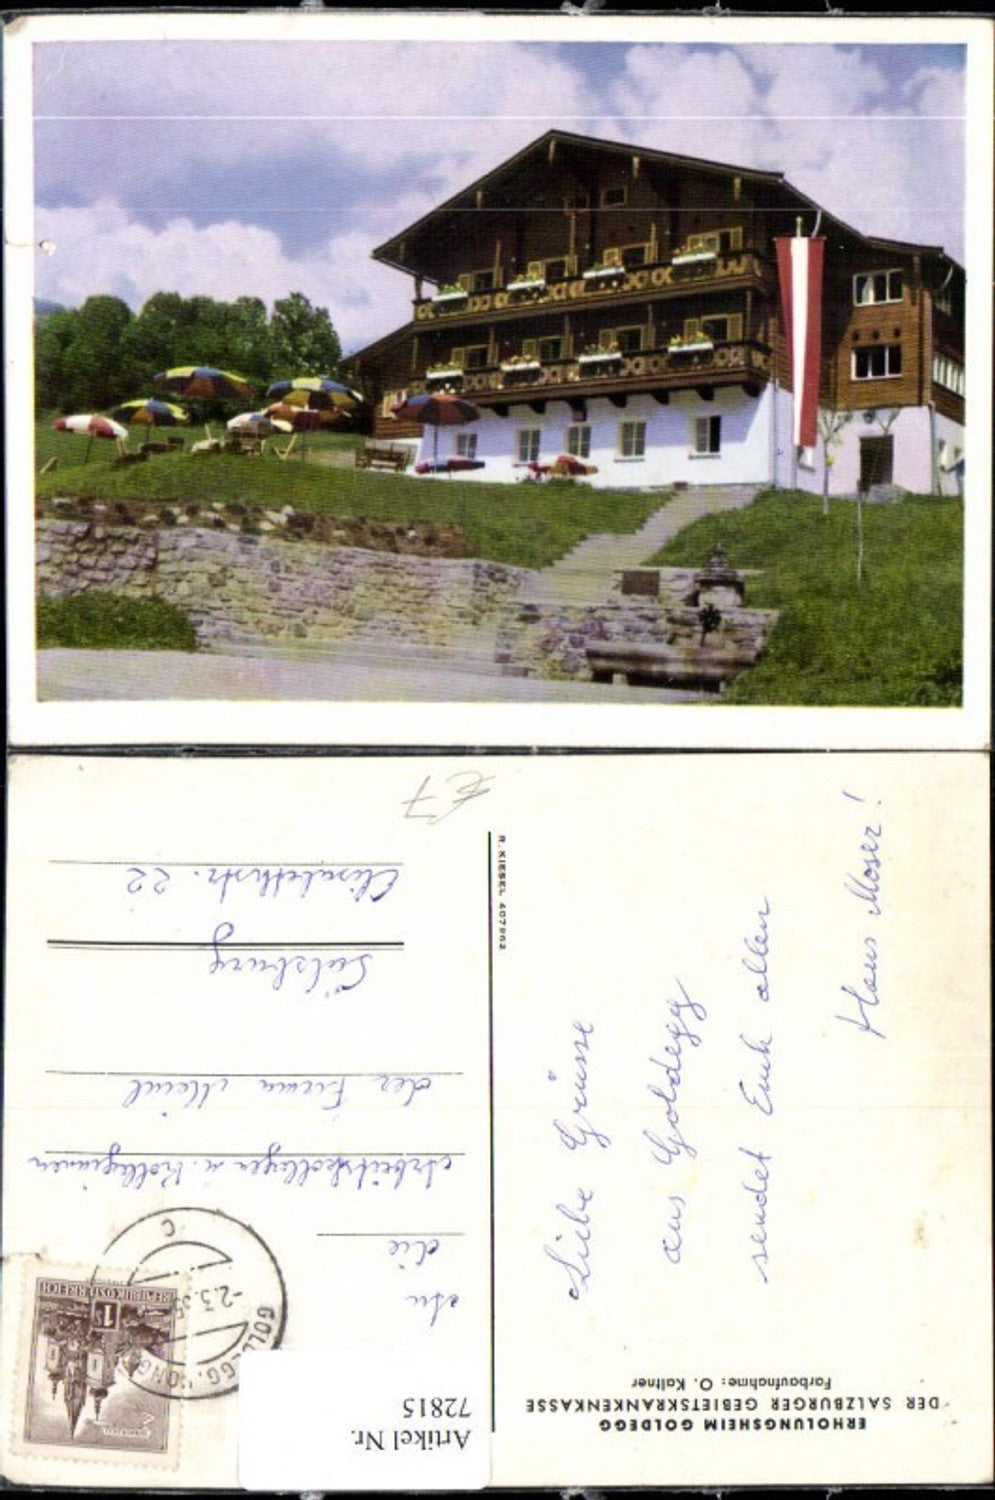 ERHOLUNGSHEIM GOLDEGG
DER SALZBURGER GEBIETSKRANKENKASSE
Farbaufnahme: O. Kaltner
Liebe Grüsse
aus Goldegg
sendet Euch allen
Hans Moser!
R. KIESEL 407962
REPUBLIK ÖSTERREICH
1s
GOLDEGG
-2.3.65
C
An
die
Arbeitskollegen u. Kolleginnen
der Firma Meinl
Salzburg
Elisabethstr. 22
€7
Artikel Nr.
72815